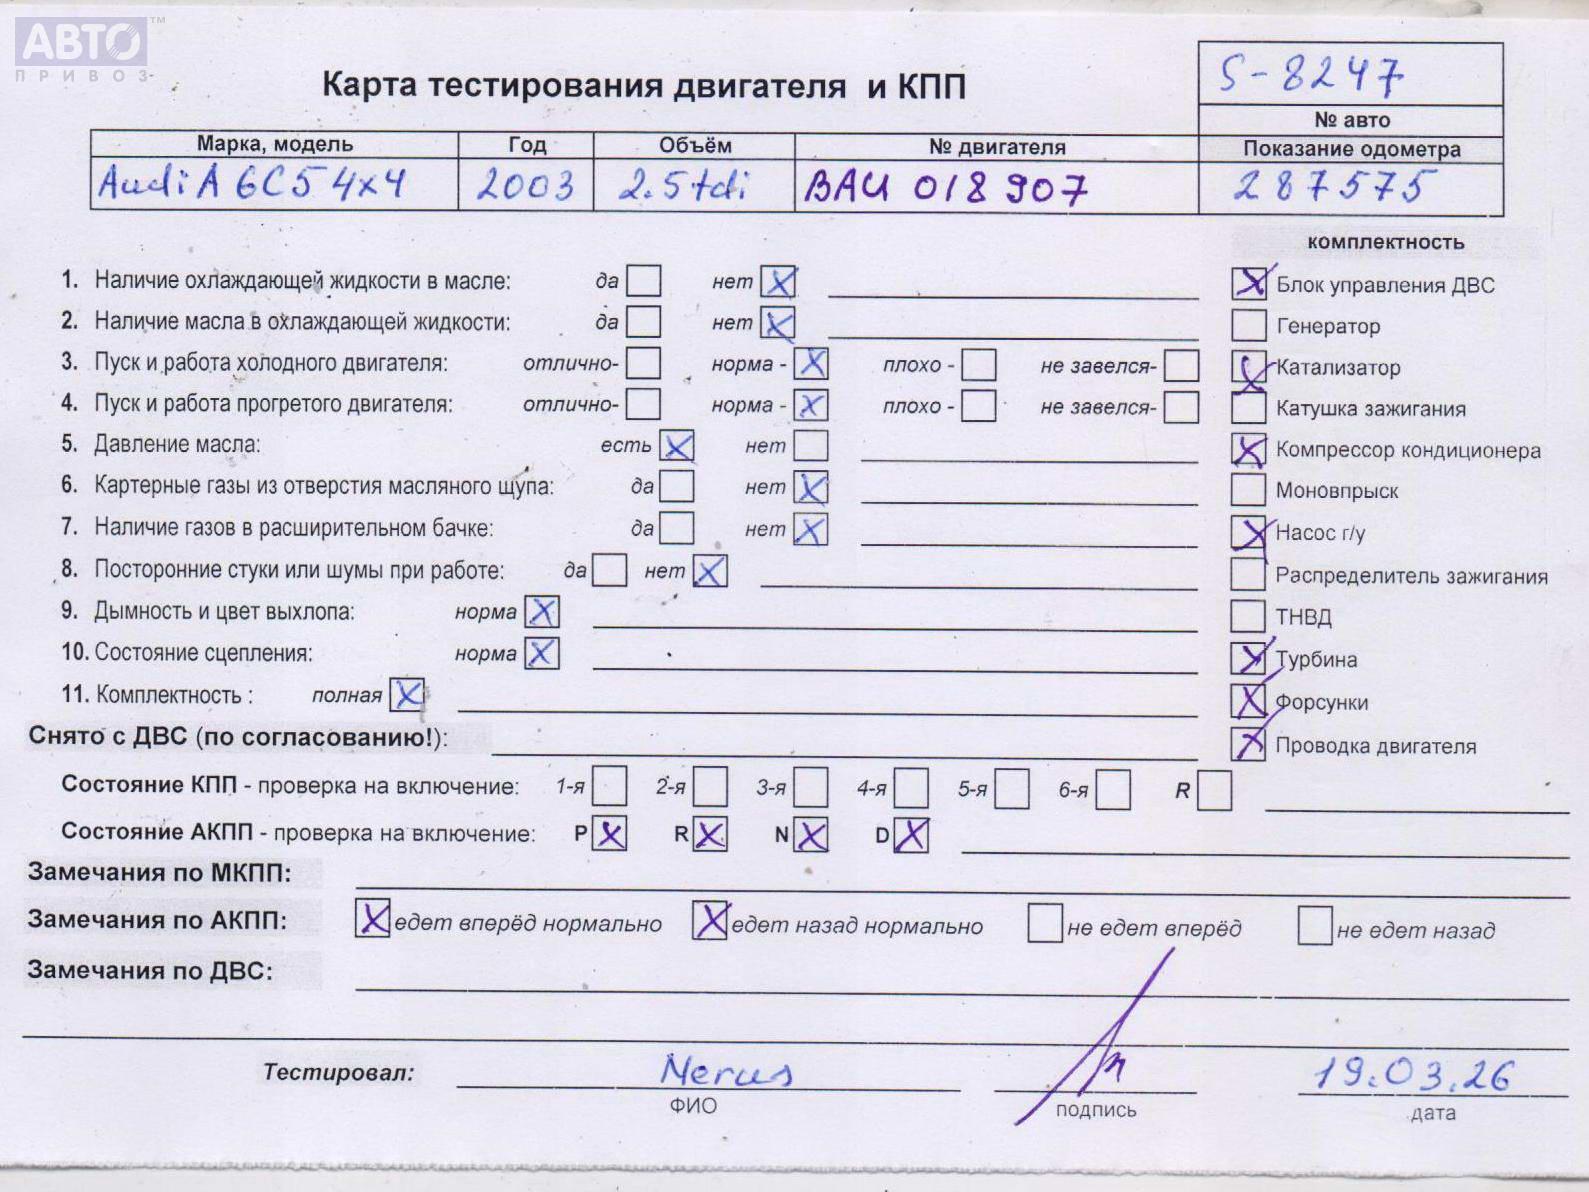 АВТО ™
ПРИВОЗ
Карта тестирования двигателя и КПП
S-8247
№ авто
Марка, модель Год Объём № двигателя Показание одометра
Audi A6C5 4x4 2003 2.5tdi BAU 018907 287575
комплектность
1. Наличие охлаждающей жидкости в масле: да нет X
Блок управления ДВС X
2. Наличие масла в охлаждающей жидкости: да нет X
Генератор
3. Пуск и работа холодного двигателя: отлично- норма - X плохо - не завелся-
Катализатор X
4. Пуск и работа прогретого двигателя: отлично- норма - X плохо - не завелся-
Катушка зажигания
5. Давление масла: есть X нет
Компрессор кондиционера X
6. Картерные газы из отверстия масляного щупа: да нет X
Моновпрыск
7. Наличие газов в расширительном бачке: да нет X
Насос г/у X
8. Посторонние стуки или шумы при работе: да нет X
Распределитель зажигания
9. Дымность и цвет выхлопа: норма X
ТНВД
10. Состояние сцепления: норма X
Турбина X
11. Комплектность : полная X
Форсунки X
Снято с ДВС (по согласованию!):
Проводка двигателя X
Состояние КПП - проверка на включение: 1-я 2-я 3-я 4-я 5-я 6-я R
Состояние АКПП - проверка на включение: P X R X N X D X
Замечания по МКПП:
Замечания по АКПП: X едет вперёд нормально X едет назад нормально не едет вперёд не едет назад
Замечания по ДВС:
Тестировал: Nerus 19.03.26
ФИО подпись дата